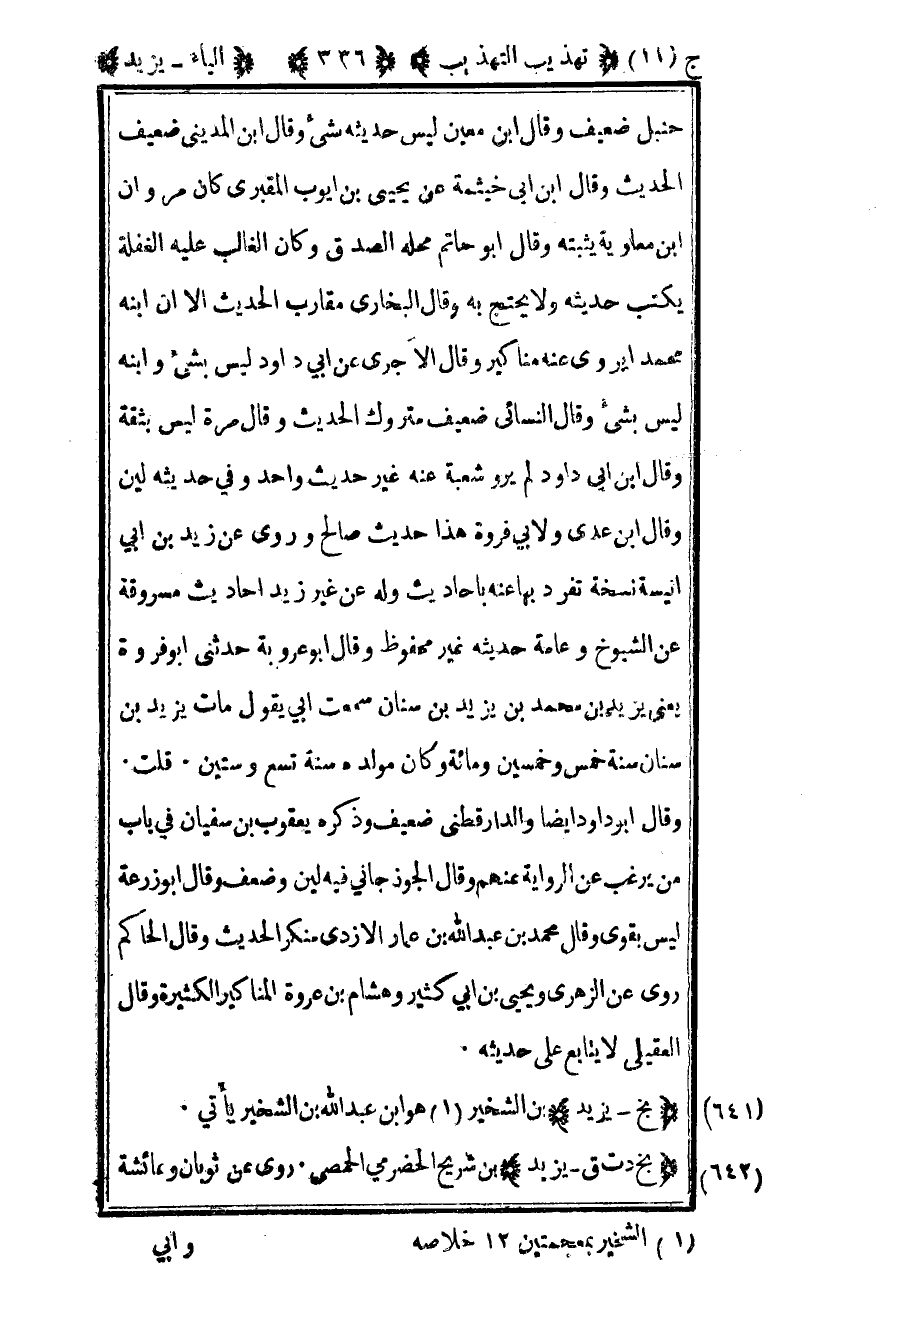 ج (١١) ﴿ تهذيب التهذيب ﴾ ﴿ ٣٣٦ ﴾ ﴿ الياء - يزيد ﴾
حنبل ضعيف وقال ابن معين ليس حديثه شئ وقال ابن المديني ضعيف
الحديث وقال ابن ابى خيثمة عن يحيى بن ايوب المقبرى كان مروان
ابن معاوية يثبته وقال ابو حاتم محله الصدق وكان الغالب عليه الغفلة
يكتب حديثه ولا يحتج به وقال البخارى مقارب الحديث الا ان ابنه
محمد ايروى عنه مناكير وقال الآجرى عن ابي داود ليس بشئ وابنه
ليس بشئ وقال النسائى ضعيف متروك الحديث وقال مرة ليس بثقة
وقال ابن ابي داود لم يرو شعبة عنه غير حديث واحد وفي حديثه لين
وقال ابن عدى ولابي فروة هذا حديث صالح وروى عن زيد بن ابي
انيسة نسخة تفرد بها عنه باحاديث وله عن غير زيد احاديث مسروقة
عن الشيوخ وعامة حديثه غير محفوظ وقال ابو عروبة حدثنى ابو فروة
يعنى يزيد بن محمد بن يزيد بن سنان سمعت ابي يقول مات يزيد بن
سنان سنة خمس وخمسين ومائة وكان مولده سنة تسع وستين ٠ قلت ٠
وقال ابو داود ايضا والدارقطنى ضعيف وذكره يعقوب بن سفيان في باب
من يرغب عن الرواية عنهم وقال الجوذجاني فيه لين وضعف وقال ابو زرعة
ليس بقوى وقال محمد بن عبد الله بن عمار الازدى منكر الحديث وقال الحاكم
روى عن الزهرى ويحيى بن ابي كثير وهشام بن عروة المناكير الكثيرة وقال
العقيلى لا يتابع على حديثه ٠
(٦٤١) ﴿ بخ - يزيد ﴾ بن الشخير (١) هو ابن عبد الله بن الشخير يأتي ٠
(٦٤٢) ﴿ بخ د ت ق - يزيد ﴾ بن شريح الحضرمي الحمصي ٠ روى عن ثوبان وعائشة
(١) الشخير بمعجمتين ١٢ خلاصه
وابي